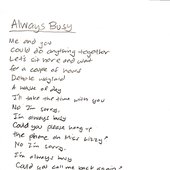 Always Busy
Me and you
Could do anything together
Let's sit here and wait
for a couple of hours
Devote
A waste of day
I'll take the time with you
No I'm sorry
I'm always busy
Could you please hang up
the phone oh Miss Lizzy?
No I'm sorry
I'm always busy
Could you call me back again?